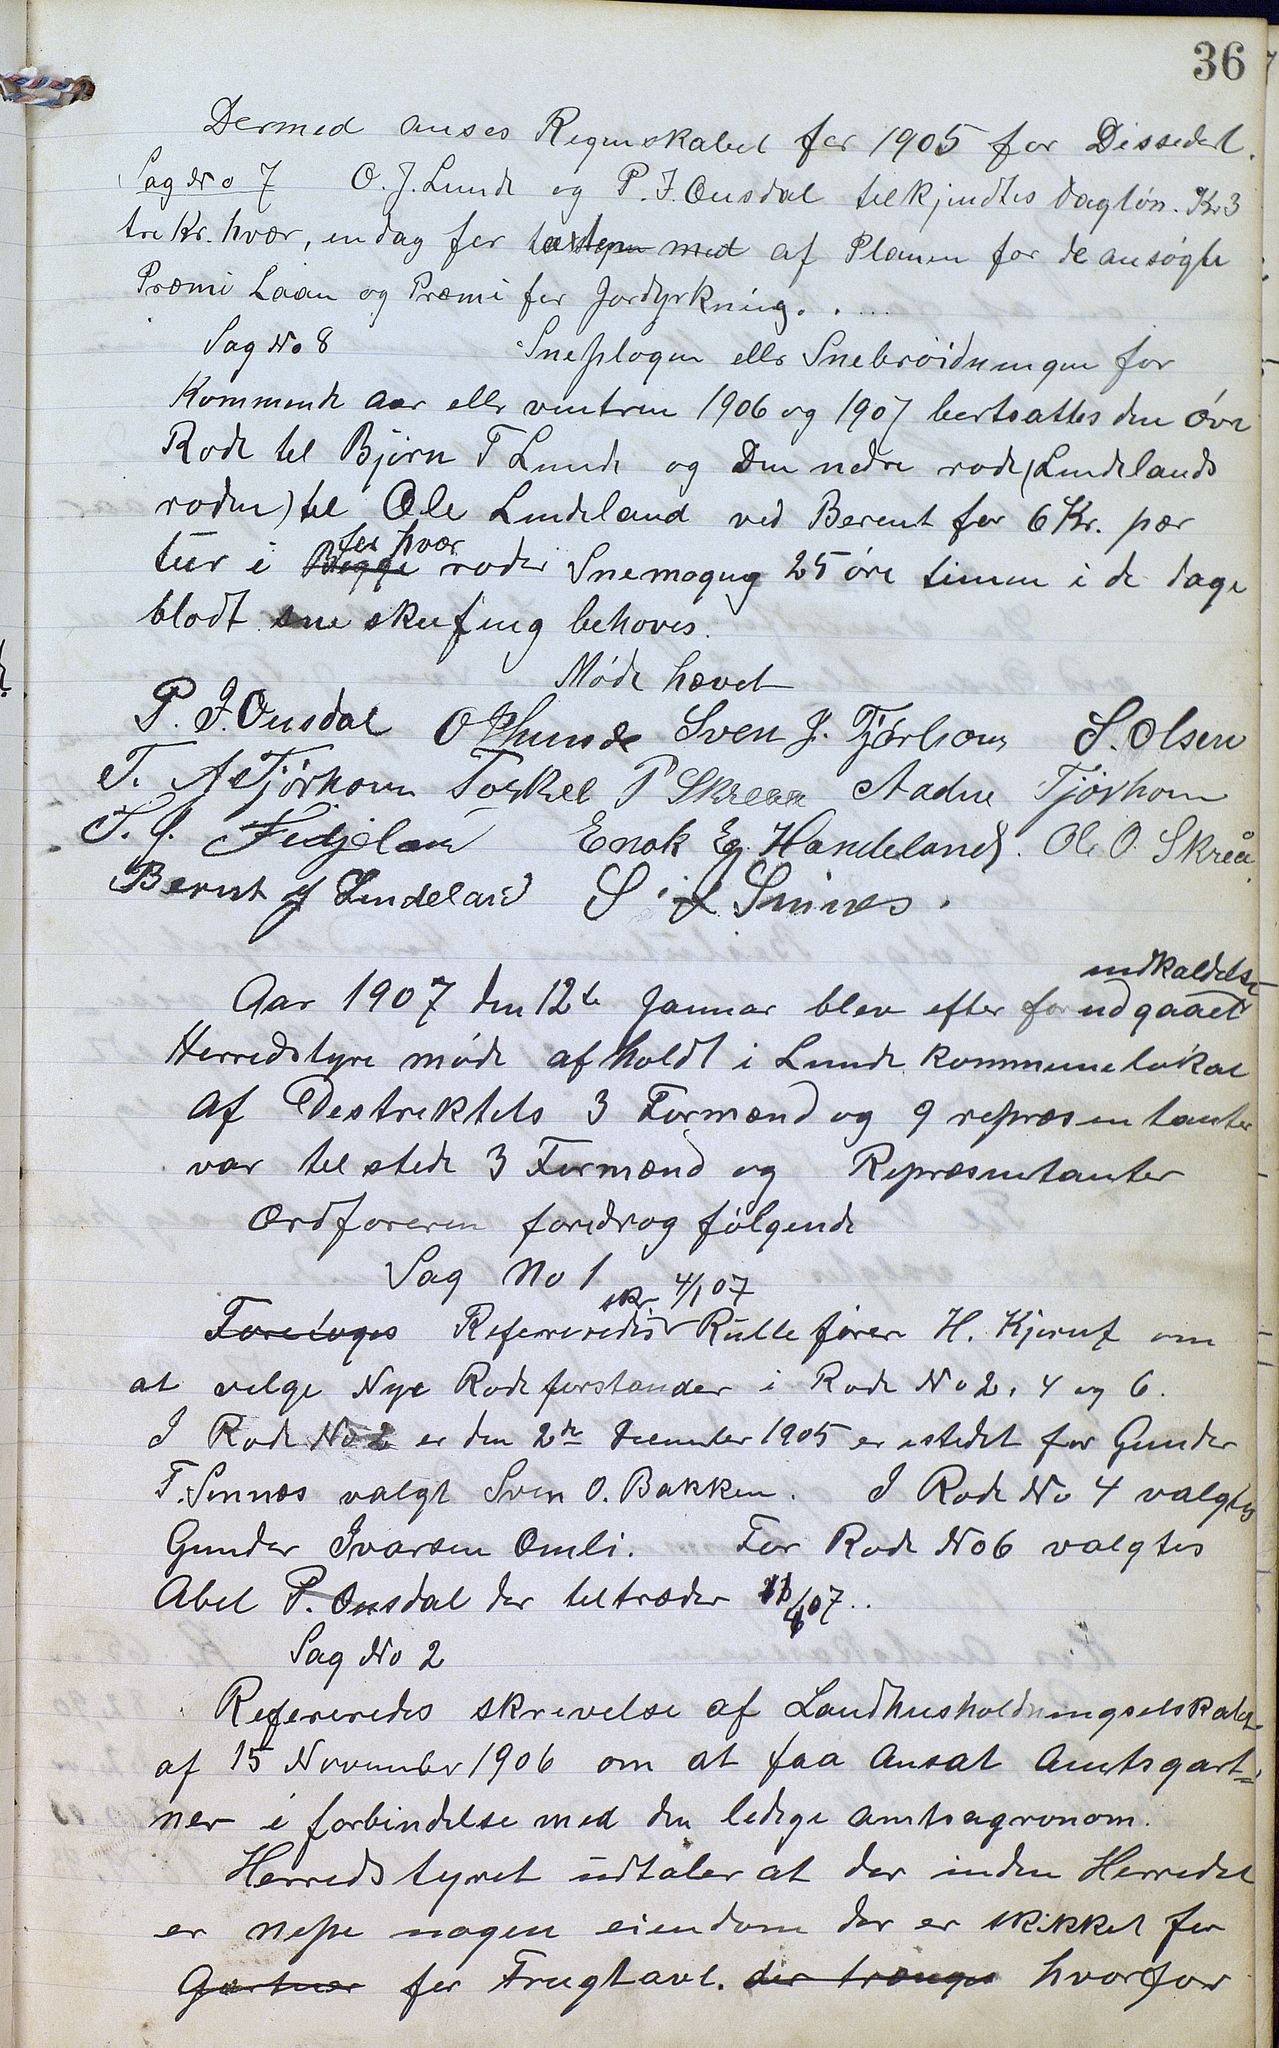 36
Dermed anses Regnskabet for 1905 for Dissedert.
Sag No 7 O. J. Lunde og P. J. Ousdal tilkjendtes dagløn. Kr 3
tre Kr. hvær, en dag for af Planen for de ansøgte
Præmi Laan og Præmi for Jordyrkning. . ...
Sag No 8 Sneplogen eller Snebrøidningen for
Kommende Aar eller ventren 1906 og 1907 bortsattes den øvre
Rode til Bjørn T Lunde og Den nedre rode (Lindelands
roden) til Ole Lindeland ved Berent for 6 Kr. pær
tur i Begge for hvær rode Snemogng 25 øre timen i de dage
blodt sne skufing behoves.
Møde hævet
P. J. Ousdal O P Lunde Sven J. Tjørhom S. Olsen
T. A Tjørhom Torkel P Skreaa Aadne Tjørhom
T. J. Fidjeland Enok Eg. Handeland. Ole O. Skreå
Bernt J Lindeland S. L Sinnes.
indkaldelse
Aar 1907 den 12te Januar blev efter forudgaaet
Herredstyre møde afholdt i Lunde kommunelokal
af Destriktets 3 Formænd og 9 repræsentanter
var tel stede 3 Formænd og Repræsentanter
Ordføreren foredrog følgende
Sag No 1
skr 4/1 07
Foretoges Refereredes Rullefører H. Kjerulf om
at velge Nye Rodeforstander i Rode No 2, 4 og 6.
I Rode No 2 er den 2de December 1905 er istedet for Gunder
T. Sinnæs valgt Sven O. Bakken. I Rode No 4 valgtes
Gunder Ivarsen Omli. For Rode No 6 valgtes
Abel P. Ousdal der teltræder /07..
Sag No 2
Refereredes skrivelse af Landhusholdningselskabet
af 15 November 1906 om at faa Ansat Amtsgart=
ner i forbindelse med den ledige amtsagronom.
Herredstyret udtaler at der inden Herredet
er neppe nogen eiendom der er skikket for
Gartner for Frugtavl. der trænges hvorfor